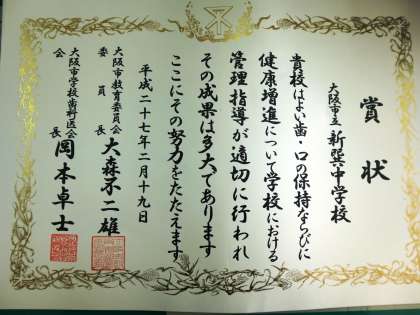 賞状
大阪市立 新巽中学校
貴校はよい歯・口の保持ならびに
健康増進について学校における
管理指導が適切に行われ
その成果は多大であります
ここにその努力をたたえます
平成二十七年二月十九日
大阪市教育委員会
委員長 大森不二雄
大阪市学校歯科医会
会長 岡本卓士